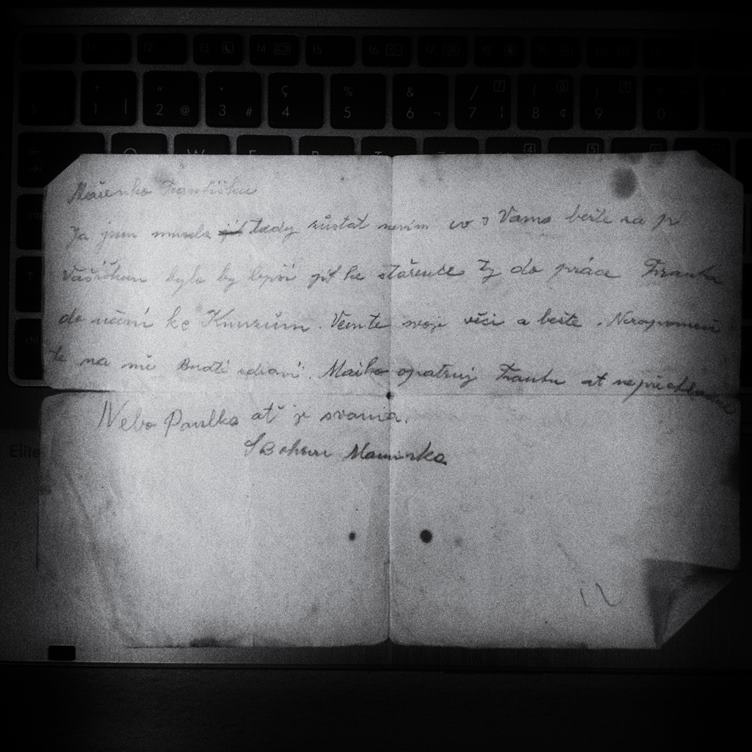 Mařenko Frantíšku
Ja jsem musela tady zůstat nevím co s Vama bešte na p
Vašíčkem bylo by lepší jít ke stařence Ty do práce Franta
do učení ke Kmuzům. Vemte svoje věci a bešte. Nezapomeň
te na mě Buďte zdraví. Mařko opatruj Frantu at
Nebo Pavlka ať je svama.
SBohem Maminka